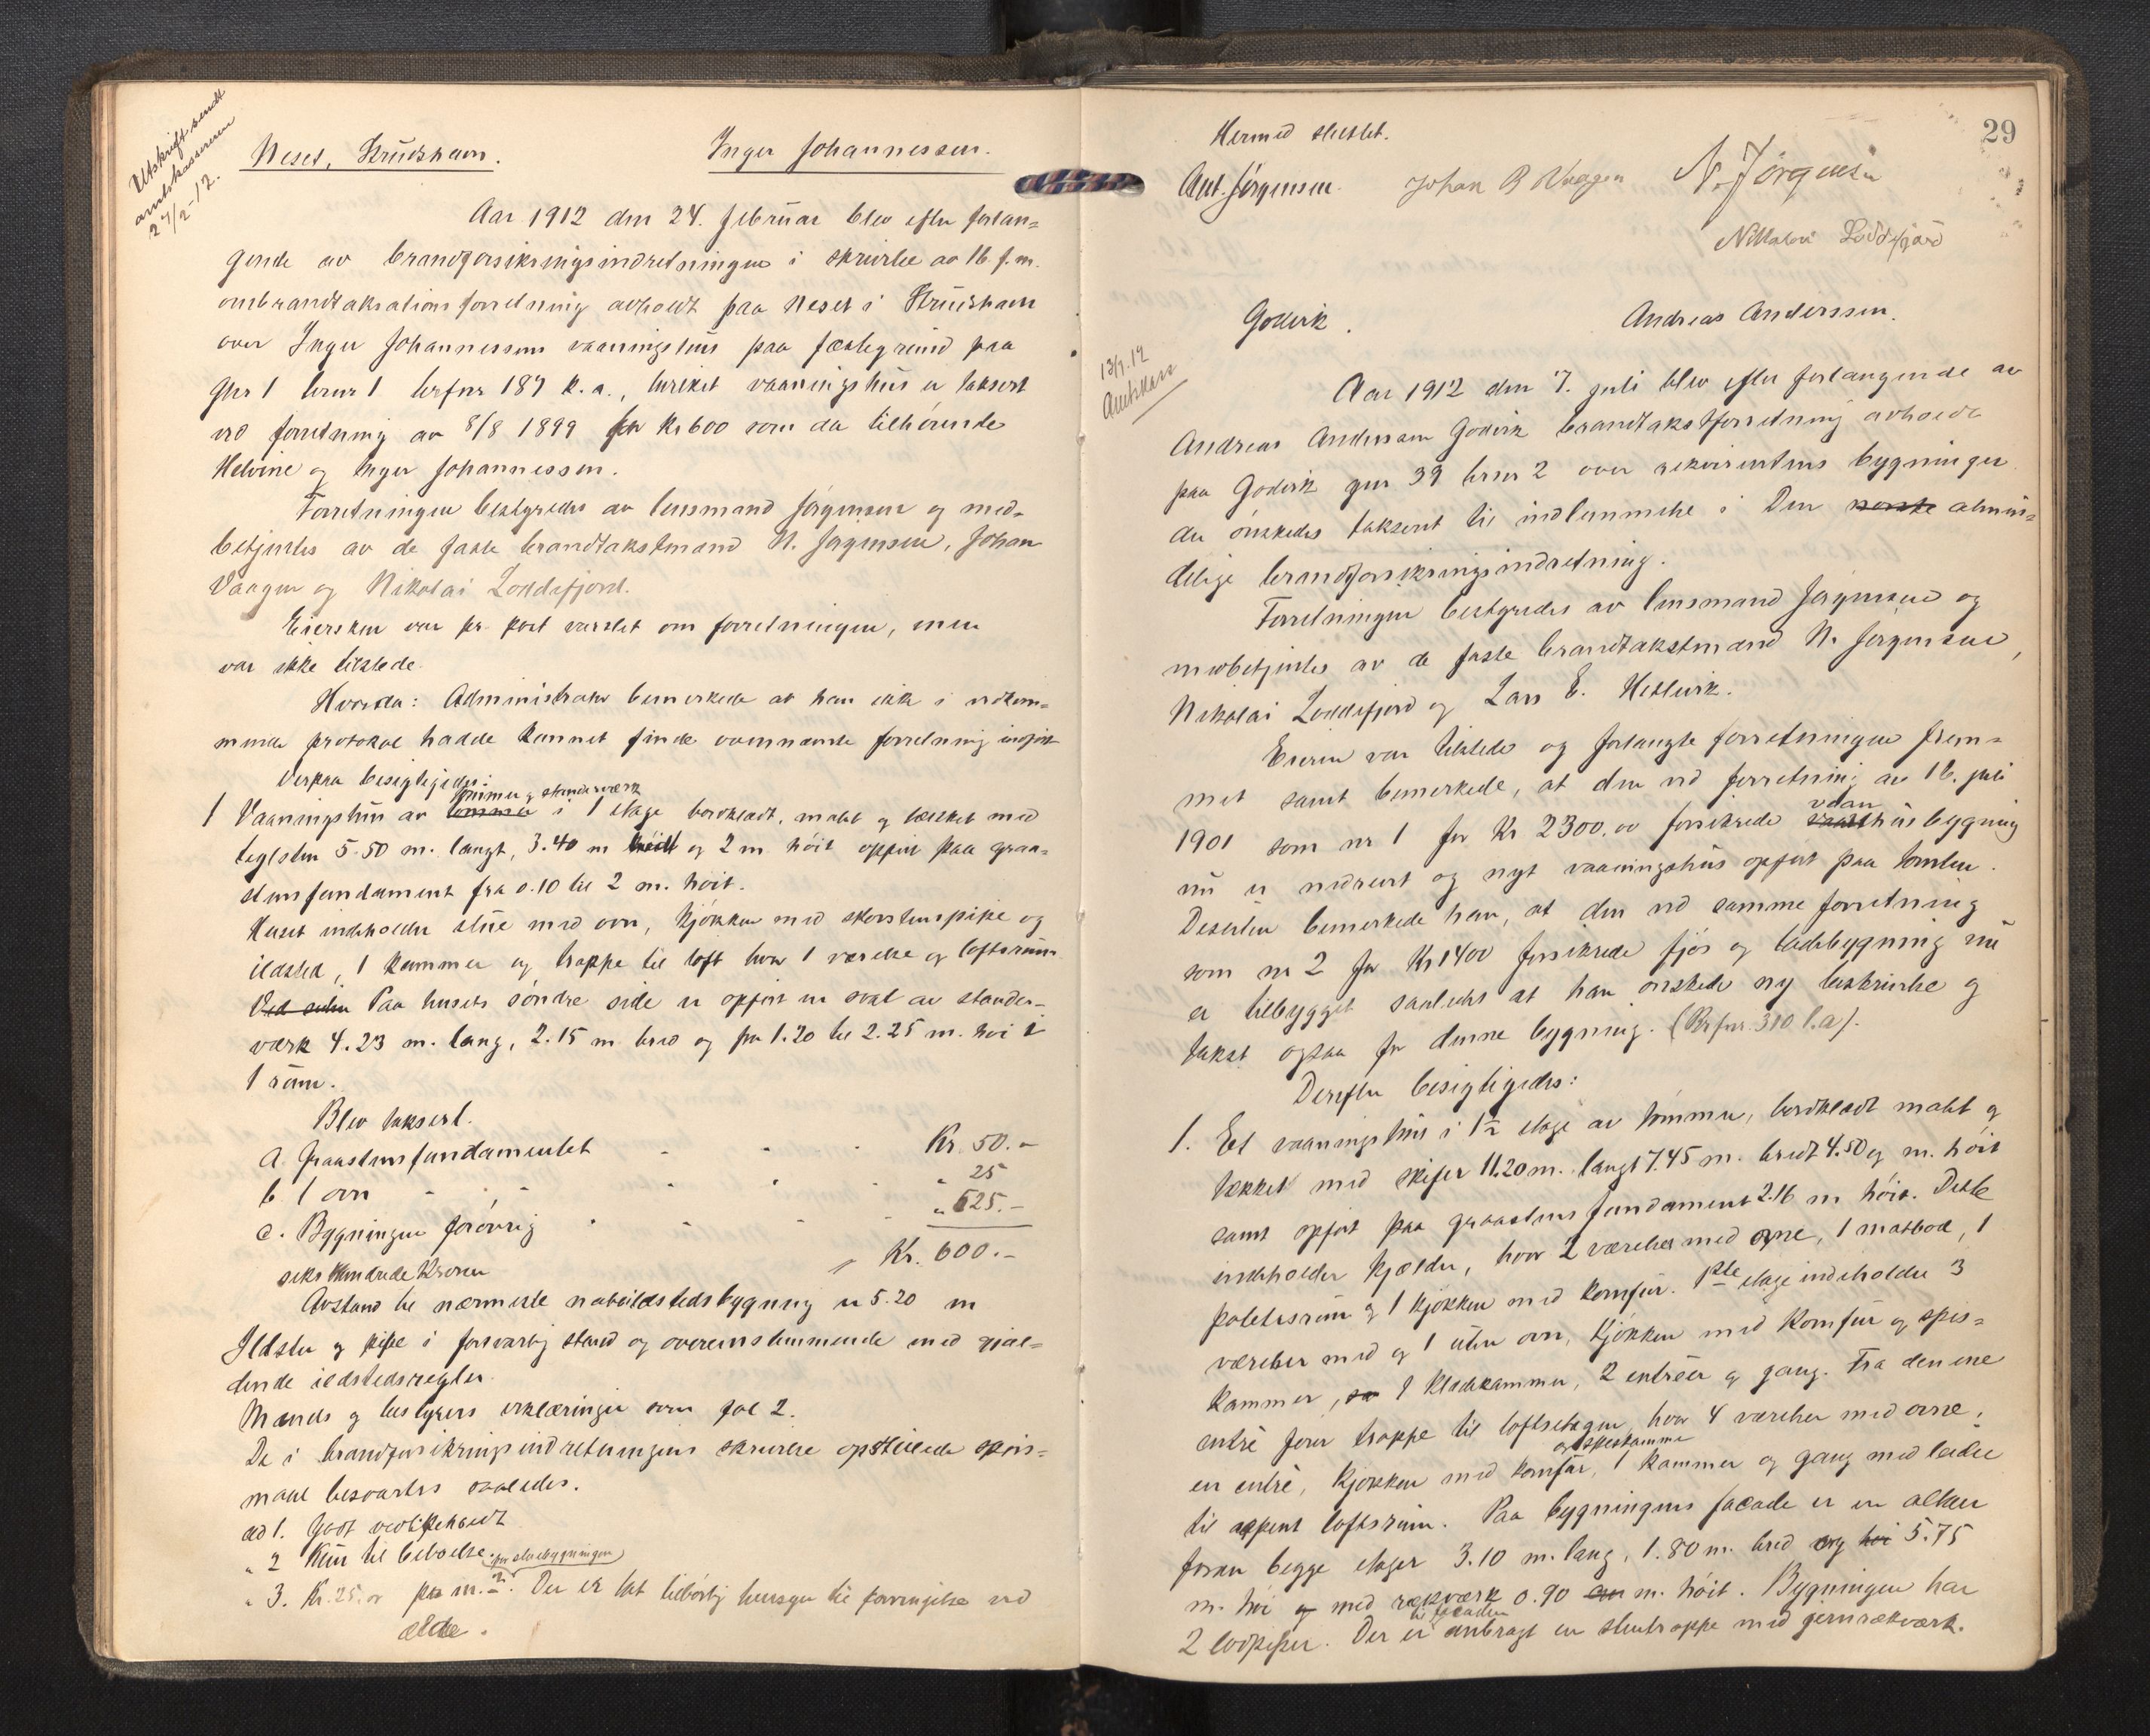 Utskrift sendt
amtskassereren
27/2-12.
Neset, Strudshavn. Inger Johannessen.
Aar 1912 den 24. februar blev efter forlan=
gende av brandforsikringsindretningen i skrivelse av 16 f.m.
ombrandtakstationsforretning avholdt paa Neset i Strudshavn
over Inger Johannessens vaaningshus paa fæstegrund paa
Gnr 1 brnr 1 brfnr 187 k.a., hvilket vaaningshus er taksert
ved forretning av 8/8 1899 for Kr 600 som da tilhørende
Helvine og Inger Johannessen.
Forretningen bestyredes av lensmand Jørgensen og med=
betjentes av de faste brandtakstmænd N. Jørgensen, Johan
Vaagen og Nikolai Loddefjord.
Eiersken var pr. post varslet om forretningen, men
var ikke tilstede.
Hvorda: Administrator bemerkede at han ikke i vedkom=
mende protokol hadde kunnet finde ovennævnte forretning indført
Derpaa besigtigedes:
tømmer og stenderværk
1 Vaaningshus av tømmer i 1 etage bordklædt, malet og tækket med
teglsten 5.50 m. langt, 3.40 m bredt og 2 m høit opført paa graa=
stensfundament fra 0.10 til 2 m. høit.
Huset indeholder stue med ovn, kjøkken med skorstenspipe og
ildsted, 1 kammer og trappe til loft hvor 1 værelse og loftsrum
Ved siden Paa husets søndre side er opført en sval av stender=
værk 4.23 m. lang, 2.15 m bred og fra 1.20 til 2.25 m. høi i
1 rum.
Blev taksert.
a. Graastensfundamentet Kr. 50.-
b. 1 ovn " 25
c. Bygningen forøvrig " 525.-
Kr. 600.-
seks hundrede Kroner
Avstand til nærmeste naboildstedsbygning er 5.20 m
Ildsteder og pipe i forsvarlig stand og overensstemmende med gjæl=
dende ildstedsregler.
Mænds og bestyrers erklæringer som fol 2.
De i brandforsikringsindretningens skrivelse opstillede spørs=
maal besvartes saaledes.
ad 1. Godt vedlikeholdt
" 2 Kun til beboelse.
(for stuebygningen)
" 3. Kr. 25.00 pr m.2. Der er tat tilbørlig hensyn til forringelse ved
ælde.
29
Hermed sluttet.
Ant. Jørgensen. Johan B Vaagen N. Jørgensen
Nikolai Loddefjord
Godvik. Andreas Anderssen.
13/9.12
Amtskass
Aar 1912 den 7. juli blev efter forlangende av
Andreas Anderssen Godvik brandtakstforretning avholdt
paa Godvik gnr 39 brnr 2 over rekvirentens bygninger
der ønskedes taksert til indlemmelse i Den norske almin=
delige brandforsikringsindretning.
Forretningen bestyredes av lensmand Jørgensen og
medbetjentes av de faste brandtakstmænd N. Jørgensen,
Nikolai Loddefjord og Lars E. Hetlevik.
Eieren var tilstede og forlangte forretningen frem=
met samt bemerkede, at den ved forretning av 16. juli
1901 som nr 1 for Kr 2300.00 forsikrede husbygning
nu er nedrevet og nyt vaaningshus opført paa tomten.
Desuten bemerkede han, at den ved samme forretning
som nr 2 for Kr 1400 forsikrede fjøs og ladebygning nu
er tilbygget saaledes at han ønskede ny beskrivelse og
takst ogsaa for denne bygning. (Brfnr. 310 l.a).
Derefter besigtigedes:
1. Et vaaningshus i 1½ etage av tømmer, bordklædt malet og
tækket med skifer 11.20 m. langt 7.45 m. bredt 4.50 og m. høit
samt opført paa graastens fundament 2.16 m høit. Dette
indeholder kjælder, hvor 2 værelser med ovne, 1 matbod, 1
potetesrum og 1 kjøkken med komfur. 1ste etage indeholder 3
værelser med og 1 uten ovn, kjøkken med komfur og spis=
kammer, 1 klædekammer, 2 entreer og gang. Fra den ene
entré fører trappe til loftsetagen, hvor 4 værelser med ovne,
og spiskammer
en entré, kjøkken med komfur, 1 kammer og gang med leder
til aapent loftsrum. Paa bygningens facade er en altan
foran begge etager 3.10 m. lang, 1.80 m. bred og høi 5.75
m. høi og med rækværk 0.90 m. høit. Bygningen har
til facaden
2 lodpiper. Der er anbragt en stentrappe med jernrækværk.